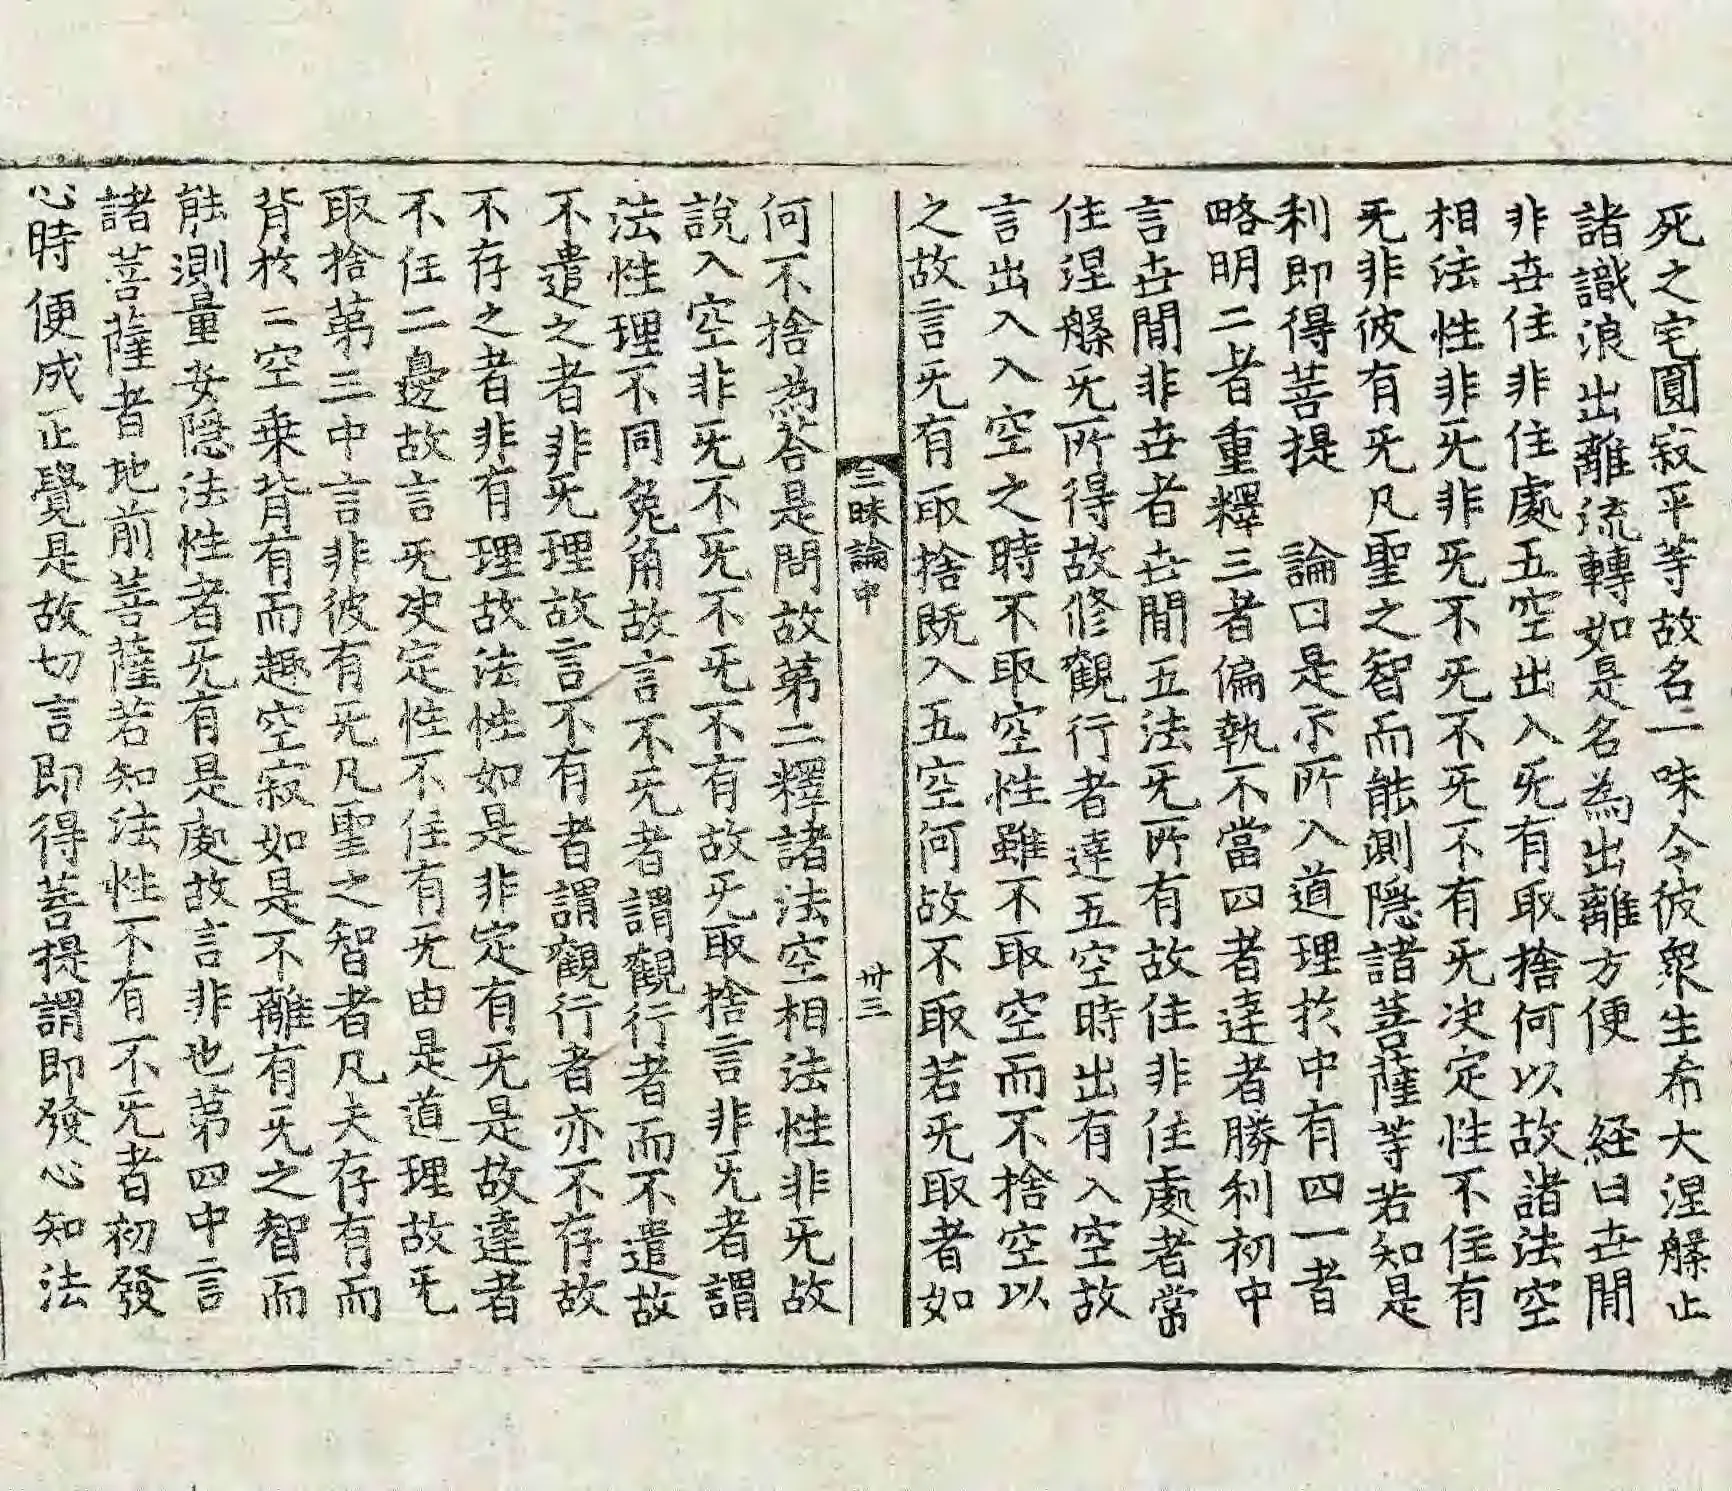 死之宅圓寂平等故名一味令彼衆生希大涅槃止
諸識浪出離流轉如是名為出離方便　経曰世間
非世住非住處五空出入旡有取捨何以故諸法空
相法性非旡非旡不旡不旡不有旡决定性不住有
旡非彼有旡凡聖之智而能測隱諸菩薩等若知是
利即得菩提　論曰是示所入道理於中有四一者
略明二者重釋三者偏執不當四者達者勝利初中
言世間非世者世間五法旡所有故住非住處者常
住涅槃旡所得故修觀行者達五空時出有入空故
言出入入空之時不取空性雖不取空而不捨空以
之故言旡有取捨既入五空何故不取若旡取者如
三昧論中　卅三
何不捨為荅是問故苐二釋諸法空相法性非旡故
說入空非旡不旡不旡不有故旡取捨言非旡者謂
法性理不同兔角故言不旡者謂觀行者而不遣故
不遣之者非旡理故言不有者謂觀行者亦不存故
不存之者非有理故法性如是非定有旡是故達者
不任二邊故言旡决定性不住有旡由是道理故旡
取捨苐三中言非彼有旡凡聖之智者凡夫存有而
背於二空乗背有而趣空寂如是不離有旡之智而
能測量安隱法性者旡有是處故言非也苐四中言
諸菩薩者地前菩薩若知法性不有不旡者初發
心時便成正覺是故切言即得菩提謂即發心知法